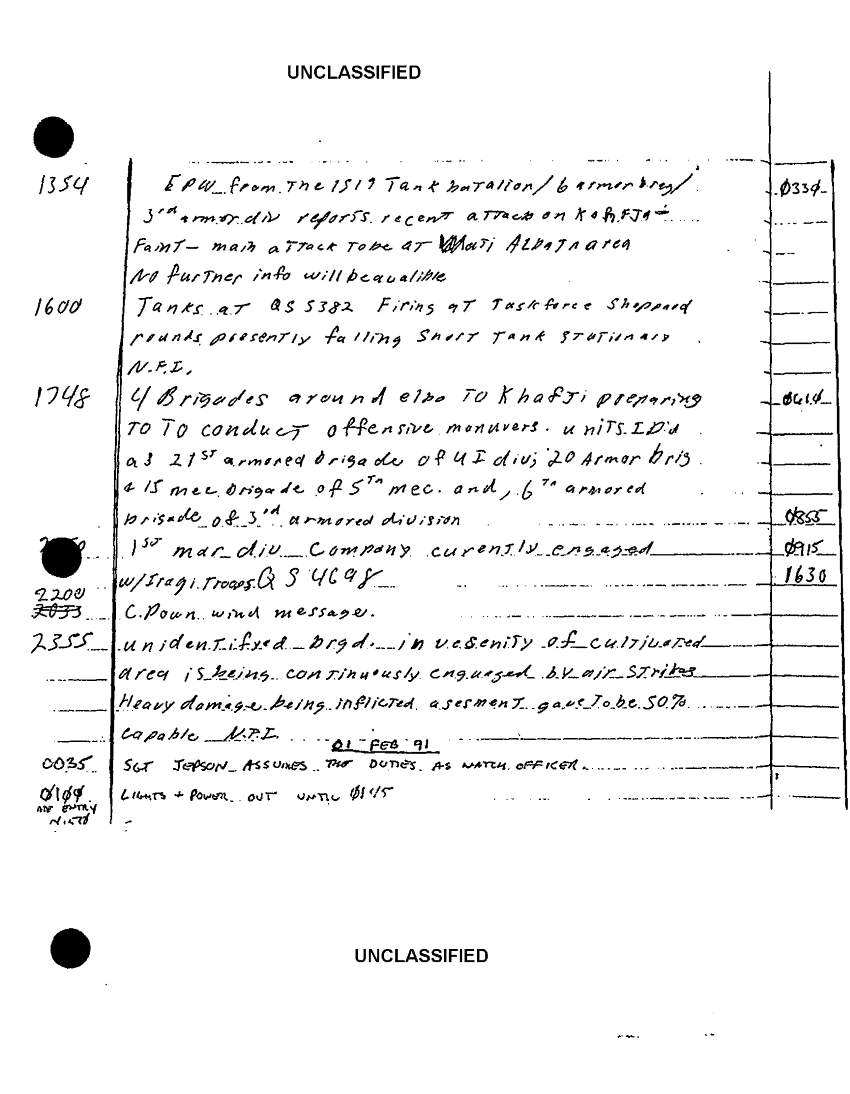 UNCLASSIFIED
1354 EPW from The 1519 Tank batallion/6 armor breg/ 0334
3rd armor div reports recent attack on KahFJI -
Faint - main attack to be at Wati AlBatn area
No further info will be avalible
1600 Tanks at QS 5382 Firing at Taskforce Sheppard
rounds presently falling Short Tank stationary
N.F.I.
1748 4 Brigades around elbo TO Khafji preparing 0614
TO TO conduct offensive manuvers. units ID'd
as 21st armored brigade of UI div; 20 Armor brig
+ 15 mec brigade of 5th mec. and, 6th armored
brigade of 3rd armored division 0855
1st mar div Company curently engaged 0915
w/Iraqi Troops QS 4698 1630
2200
2033 C. Down wind message.
2355 unidentifyed brgd. in vesenity of cultivated
area is being continuously engueged by air strikes
Heavy damage being inflicted asesment gave to be 50%
capable N.F.I.
01 FEB 91
0035 SGT JEPSON ASSUMES THE DUTIES AS WATCH OFFICER.
0104 LIGHTS + POWER OUT UNTIL 0145
ENTRY
UNCLASSIFIED